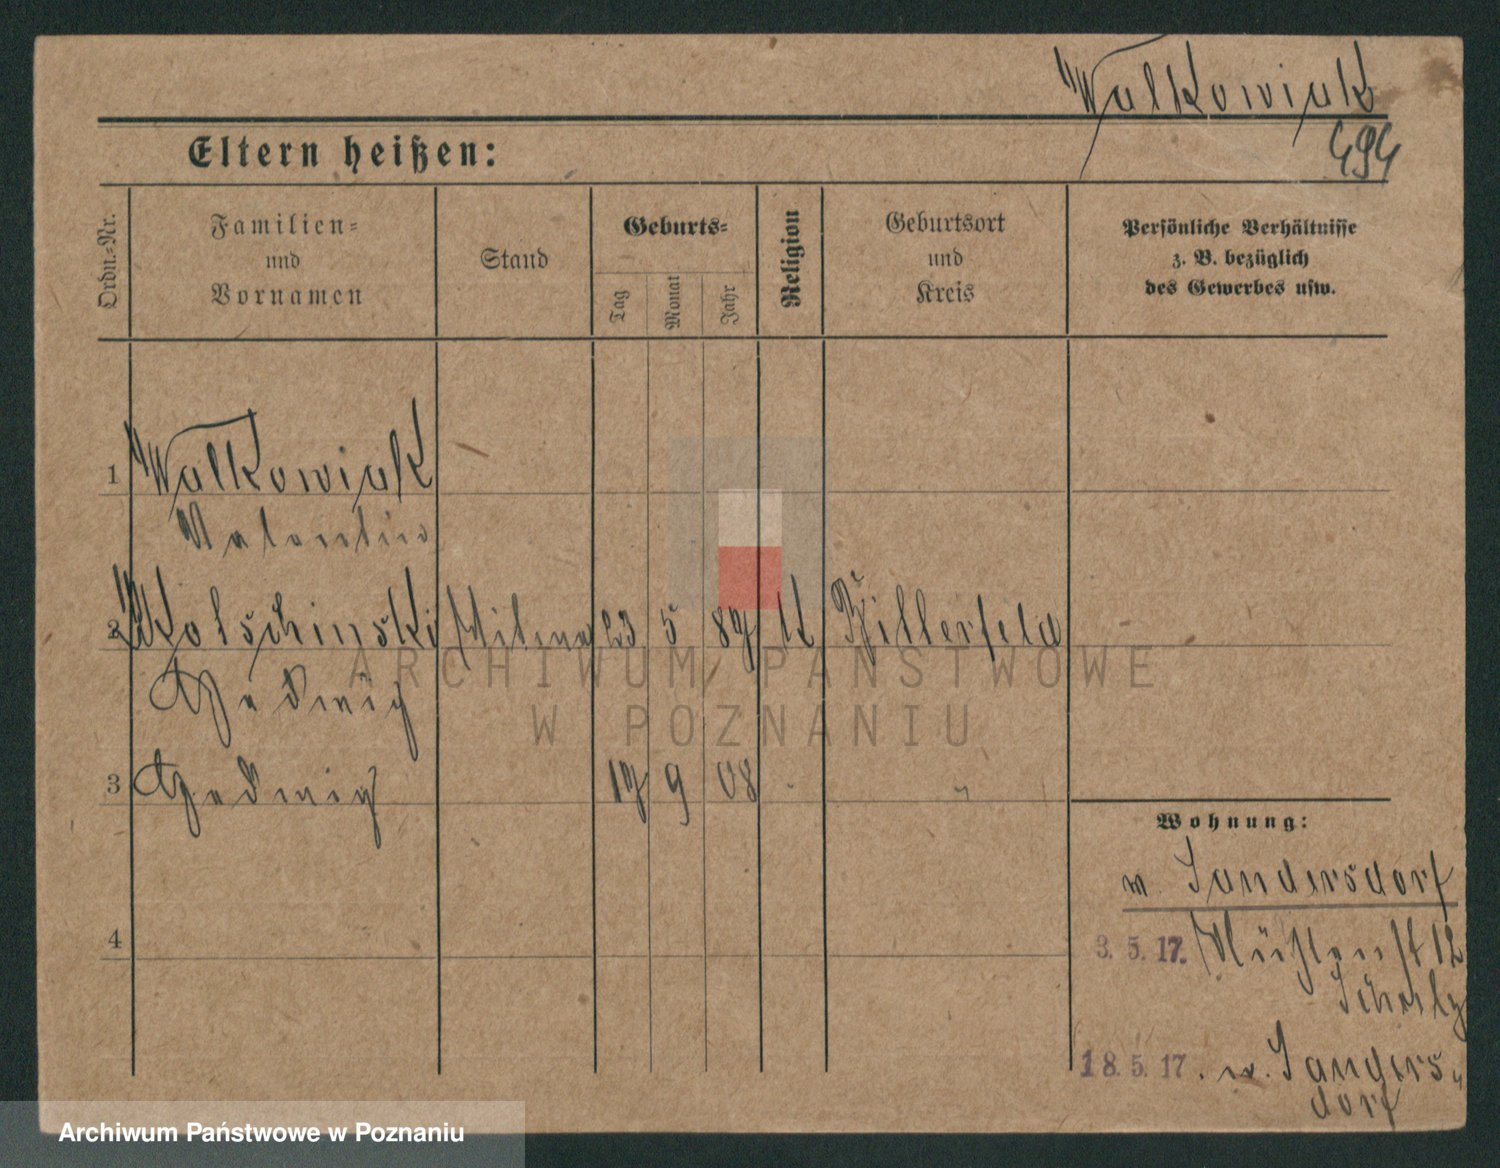 Walkowiak
494
Eltern heißen:
Ordn.-Nr.
Familien-
und
Vornamen
Stand
Geburts-
Tag
Monat
Jahr
Religion
Geburtsort
und
Kreis
Persönliche Verhältnisse
z. B. bezüglich
des Gewerbes usw.
1 Walkowiak
Valentin
2 Kolschinski Witwe 23 5 87 k Billerfeld
Hedwig
3 Hedwig 17 9 08 "
Wohnung:
n. Sandersdorf
3. 5. 17. Mühlenst 12
Scholz
4
18. 5. 17. n. Sanders-
dorf
ARCHIWUM PAŃSTWOWE
W POZNANIU
Archiwum Państwowe w Poznaniu